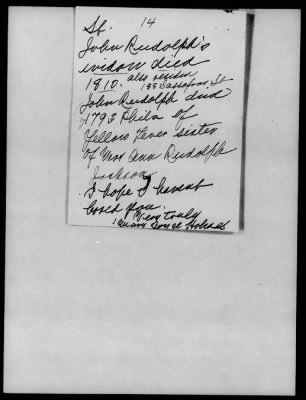 St. 14
John Rudolph's
widow died
1810. also resided
188 Sassafras St
John Rudolph died
1793 Phila of
Yellow Fever sister
of Mrs Ann Rudolph
Jackson
I hope I havent
bored you.
Very truly
Mary